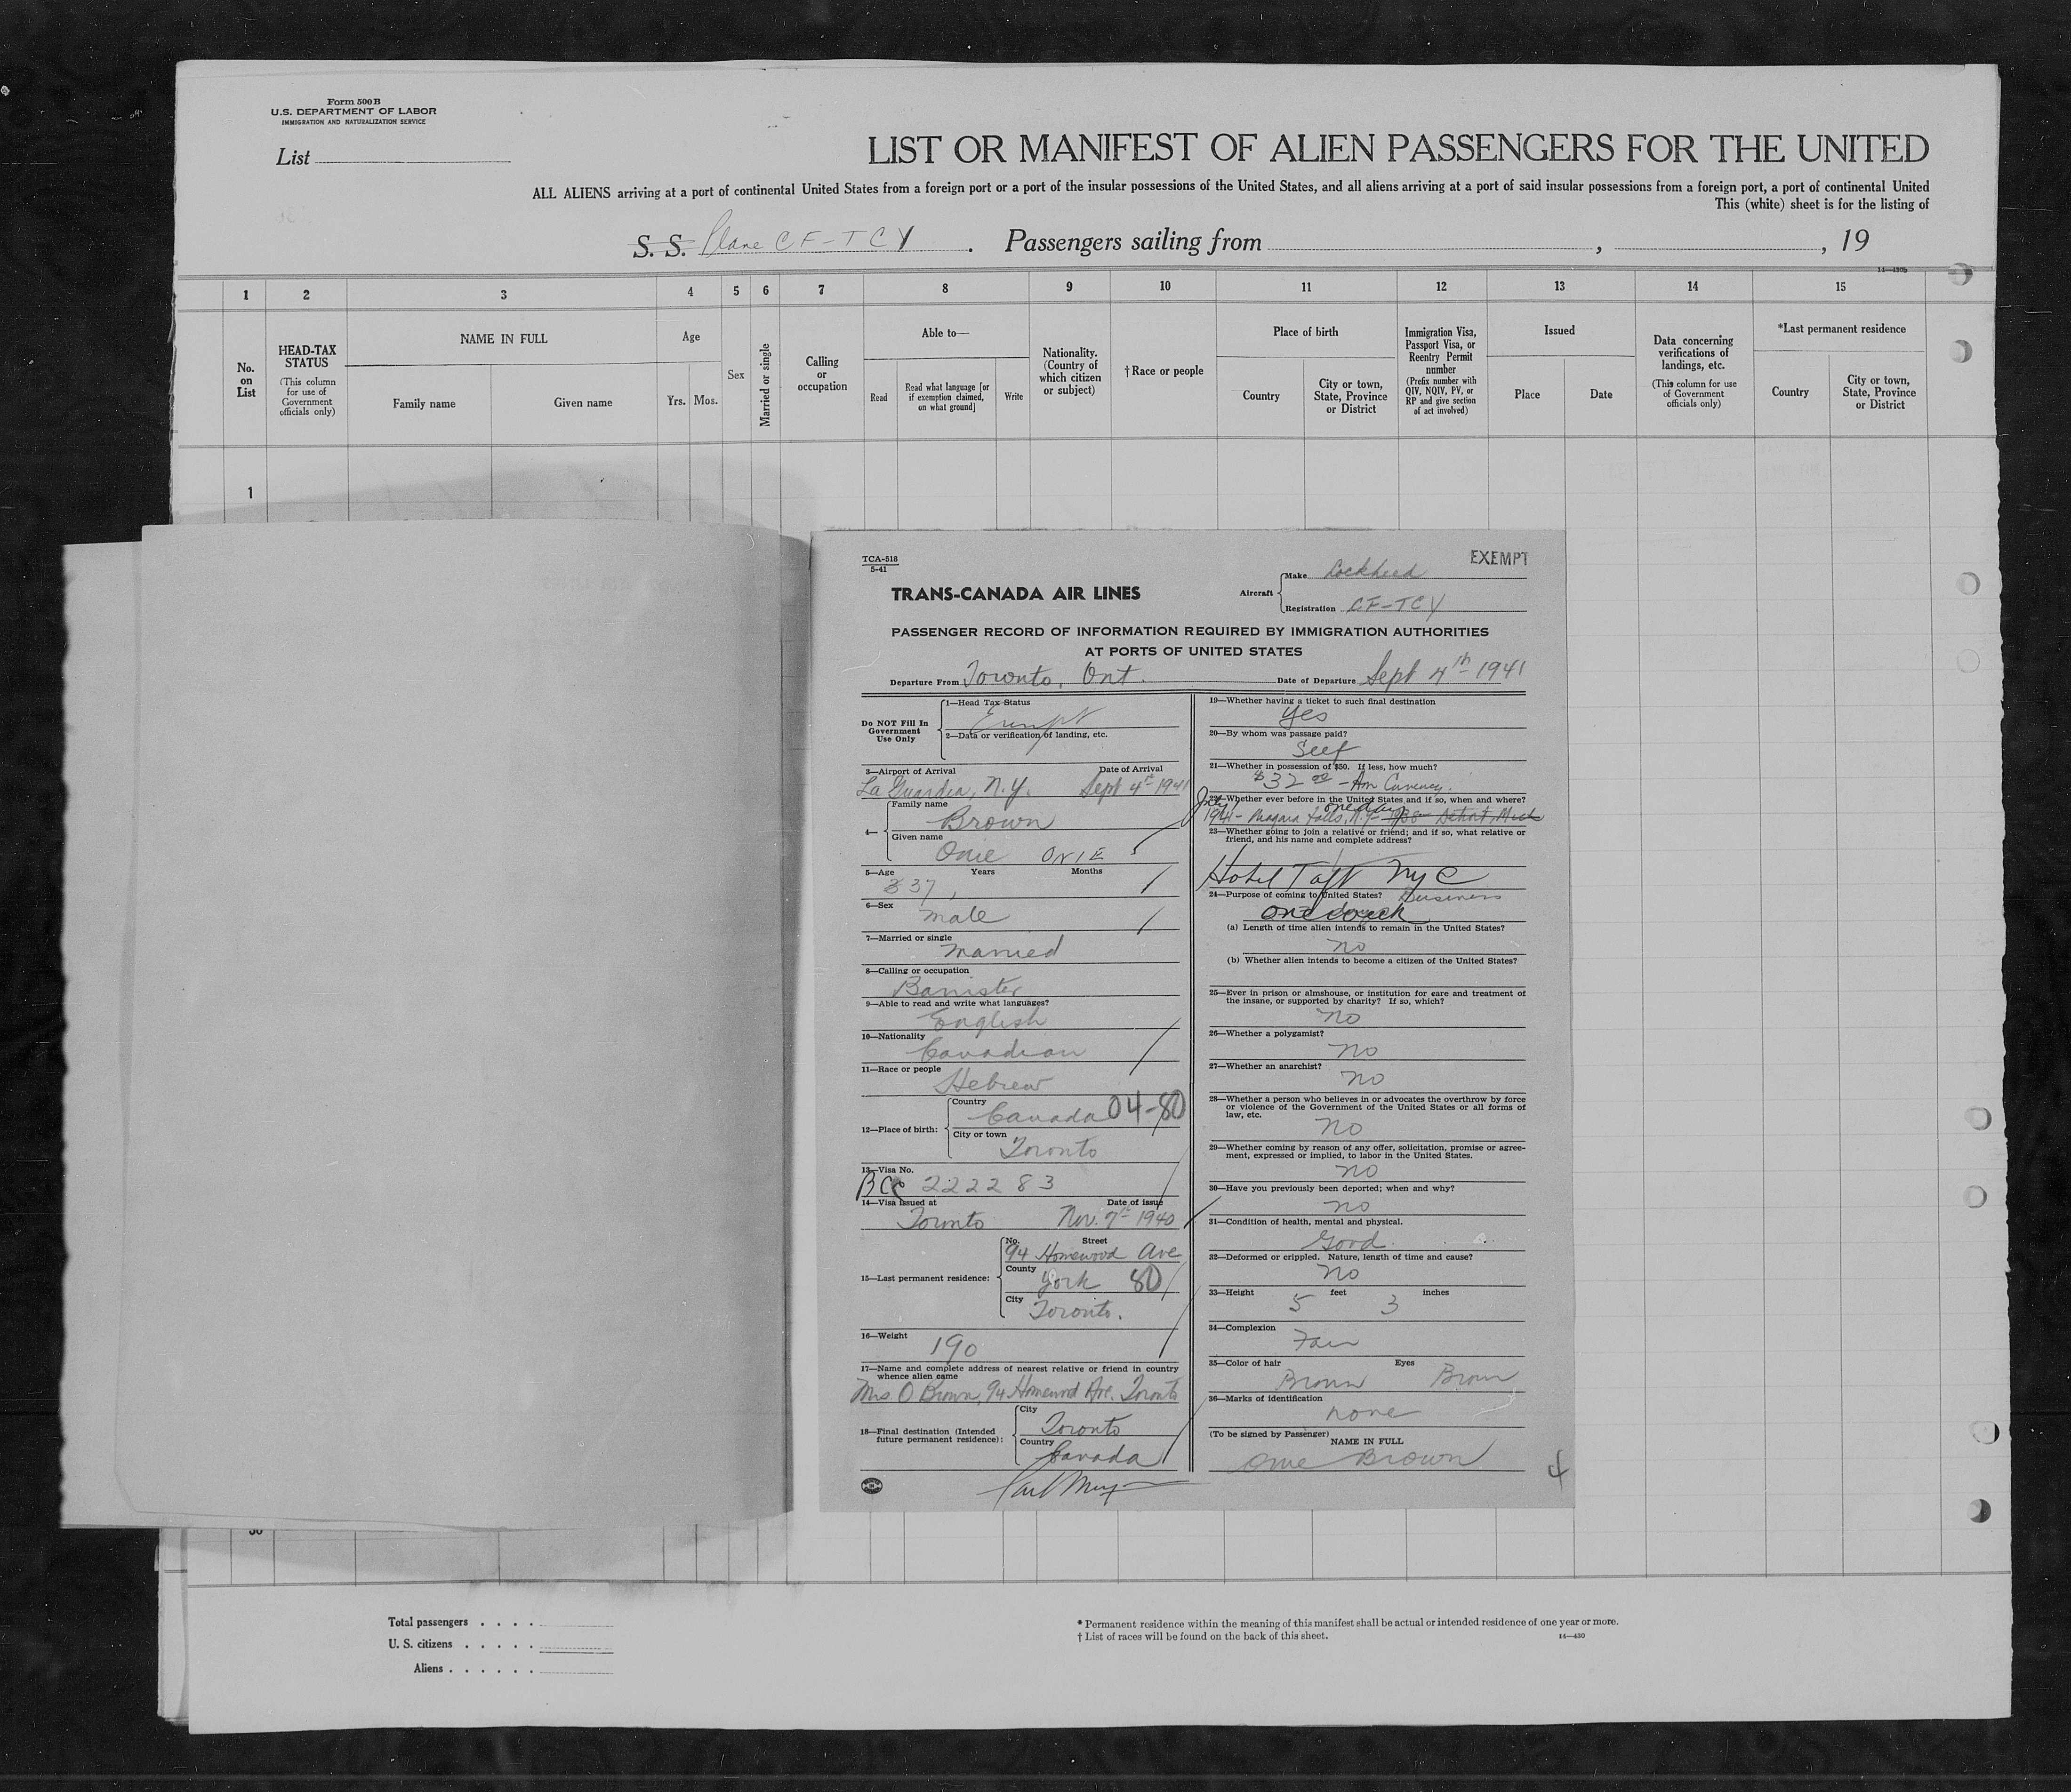 Form 500 B
U.S. DEPARTMENT OF LABOR
IMMIGRATION AND NATURALIZATION SERVICE
List
LIST OR MANIFEST OF ALIEN PASSENGERS FOR THE UNITED
ALL ALIENS arriving at a port of continental United States from a foreign port or a port of the insular possessions of the United States, and all aliens arriving at a port of said insular possessions from a foreign port, a port of continental United
This (white) sheet is for the listing of
S. S. Plane CF-TCY. Passengers sailing from , , 19
14—430b
1 2 3 4 5 6 7 8 9 10 11 12 13 14 15
No. on List
HEAD-TAX STATUS (This column for use of Government officials only)
NAME IN FULL
Family name Given name
Age
Yrs. Mos.
Sex
Married or single
Calling or occupation
Able to—
Read Read what language [or if exemption claimed, on what ground] Write
Nationality. (Country of which citizen or subject)
† Race or people
Place of birth
Country City or town, State, Province or District
Immigration Visa, Passport Visa, or Reentry Permit number (Prefix number with QIV, NQIV, PV, or RP and give section of act involved)
Issued
Place Date
Data concerning verifications of landings, etc. (This column for use of Government officials only)
*Last permanent residence
Country City or town, State, Province or District
1
TCA-518
5-41
EXEMPT
TRANS-CANADA AIR LINES
Aircraft Make Lockheed
Registration CF-TCY
PASSENGER RECORD OF INFORMATION REQUIRED BY IMMIGRATION AUTHORITIES
AT PORTS OF UNITED STATES
Departure From Toronto, Ont. Date of Departure Sept 4th 1941
Do NOT Fill In Government Use Only
1—Head Tax Status
Exempt
2—Data or verification of landing, etc.
3—Airport of Arrival Date of Arrival
La Guardia, N.Y. Sept 4th 1941
4— Family name
Brown
Given name
Orie ORIE
5—Age Years Months
37
6—Sex
Male
7—Married or single
Married
8—Calling or occupation
Barrister
9—Able to read and write what languages?
English
10—Nationality
Canadian
11—Race or people
Hebrew
12—Place of birth: Country
Canada 04-80
City or town
Toronto
13—Visa No.
BCC 222283
14—Visa issued at Date of issue
Toronto Nov. 7th 1940
15—Last permanent residence: No. Street
94 Homewood Ave
County
York 80
City
Toronto.
16—Weight
190
17—Name and complete address of nearest relative or friend in country
whence alien came
Mrs O Brown, 94 Homewood Ave. Toronto
18—Final destination (Intended future permanent residence): City
Toronto
Country
Canada
19—Whether having a ticket to such final destination
yes
20—By whom was passage paid?
Self
21—Whether in possession of $50. If less, how much?
$32 00 - Am Currency.
22—Whether ever before in the United States and if so, when and where?
July 1941 - Niagara Falls, N.Y. one day 1938 Detroit, Mich
23—Whether going to join a relative or friend; and if so, what relative or
friend, and his name and complete address?
Hotel Taft NYC
24—Purpose of coming to United States? Business
one week
(a) Length of time alien intends to remain in the United States?
no
(b) Whether alien intends to become a citizen of the United States?
25—Ever in prison or almshouse, or institution for care and treatment of
the insane, or supported by charity? If so, which?
no
26—Whether a polygamist?
no
27—Whether an anarchist?
no
28—Whether a person who believes in or advocates the overthrow by force
or violence of the Government of the United States or all forms of
law, etc.
no
29—Whether coming by reason of any offer, solicitation, promise or agree-
ment, expressed or implied, to labor in the United States.
no
30—Have you previously been deported; when and why?
no
31—Condition of health, mental and physical.
Good
32—Deformed or crippled. Nature, length of time and cause?
no
33—Height feet inches
5 3
34—Complexion
Fair
35—Color of hair Eyes
Brown Brown
36—Marks of identification
none
(To be signed by Passenger)
NAME IN FULL
Orie Brown
4
30
Total passengers
U. S. citizens
Aliens
* Permanent residence within the meaning of this manifest shall be actual or intended residence of one year or more.
† List of races will be found on the back of this sheet.
14—430